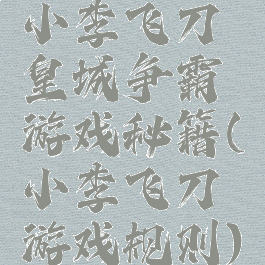 小李飞刀
皇城争霸
游戏秘籍(
小李飞刀
游戏规则)